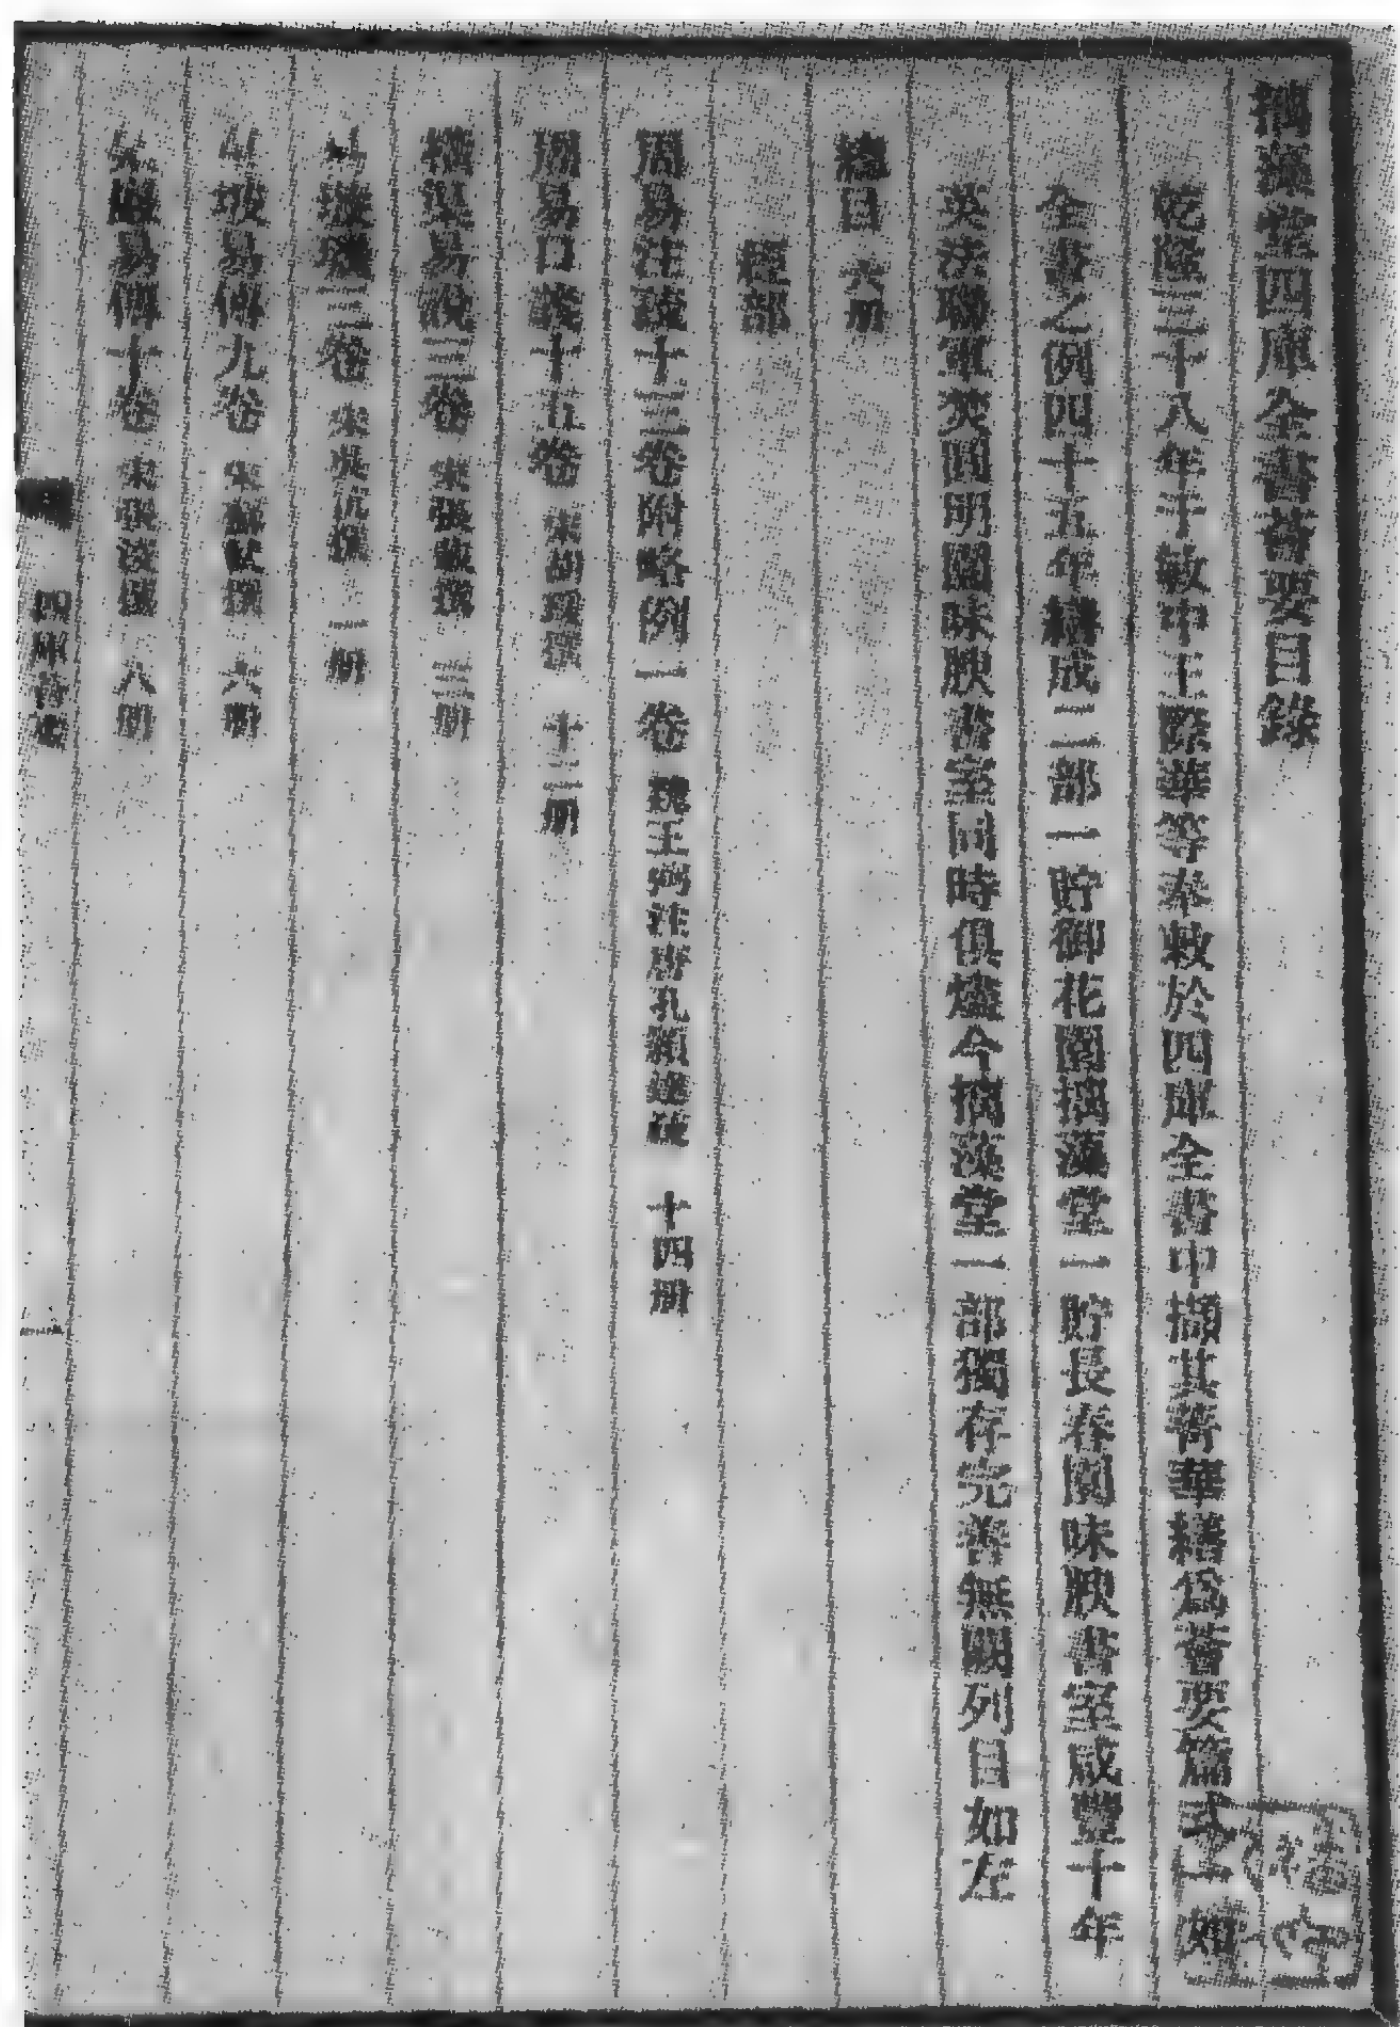 摛藻堂四庫全書薈要目錄
乾隆三十八年于敏中王際華等奉敕於四庫全書中擷其菁華繕為薈要篇式一如
全書之例四十五年繕成二部一貯御花園摛藻堂一貯長春園味腴書室咸豐十年
英法聯軍焚圓明園味腴書室同時俱燼今摛藻堂一部獨存完善無闕列目如左
總目 六册
經部
周易注疏十三卷附略例一卷 魏王弼注唐孔穎達疏 十四册
周易口義十五卷 宋胡瑗撰 十二册
橫渠易說三卷 宋張載撰 三册
卷 宋 撰 册
坡易傳九卷 宋蘇軾撰 六册
易傳十卷 宋朱 撰 八册
四庫薈要
一